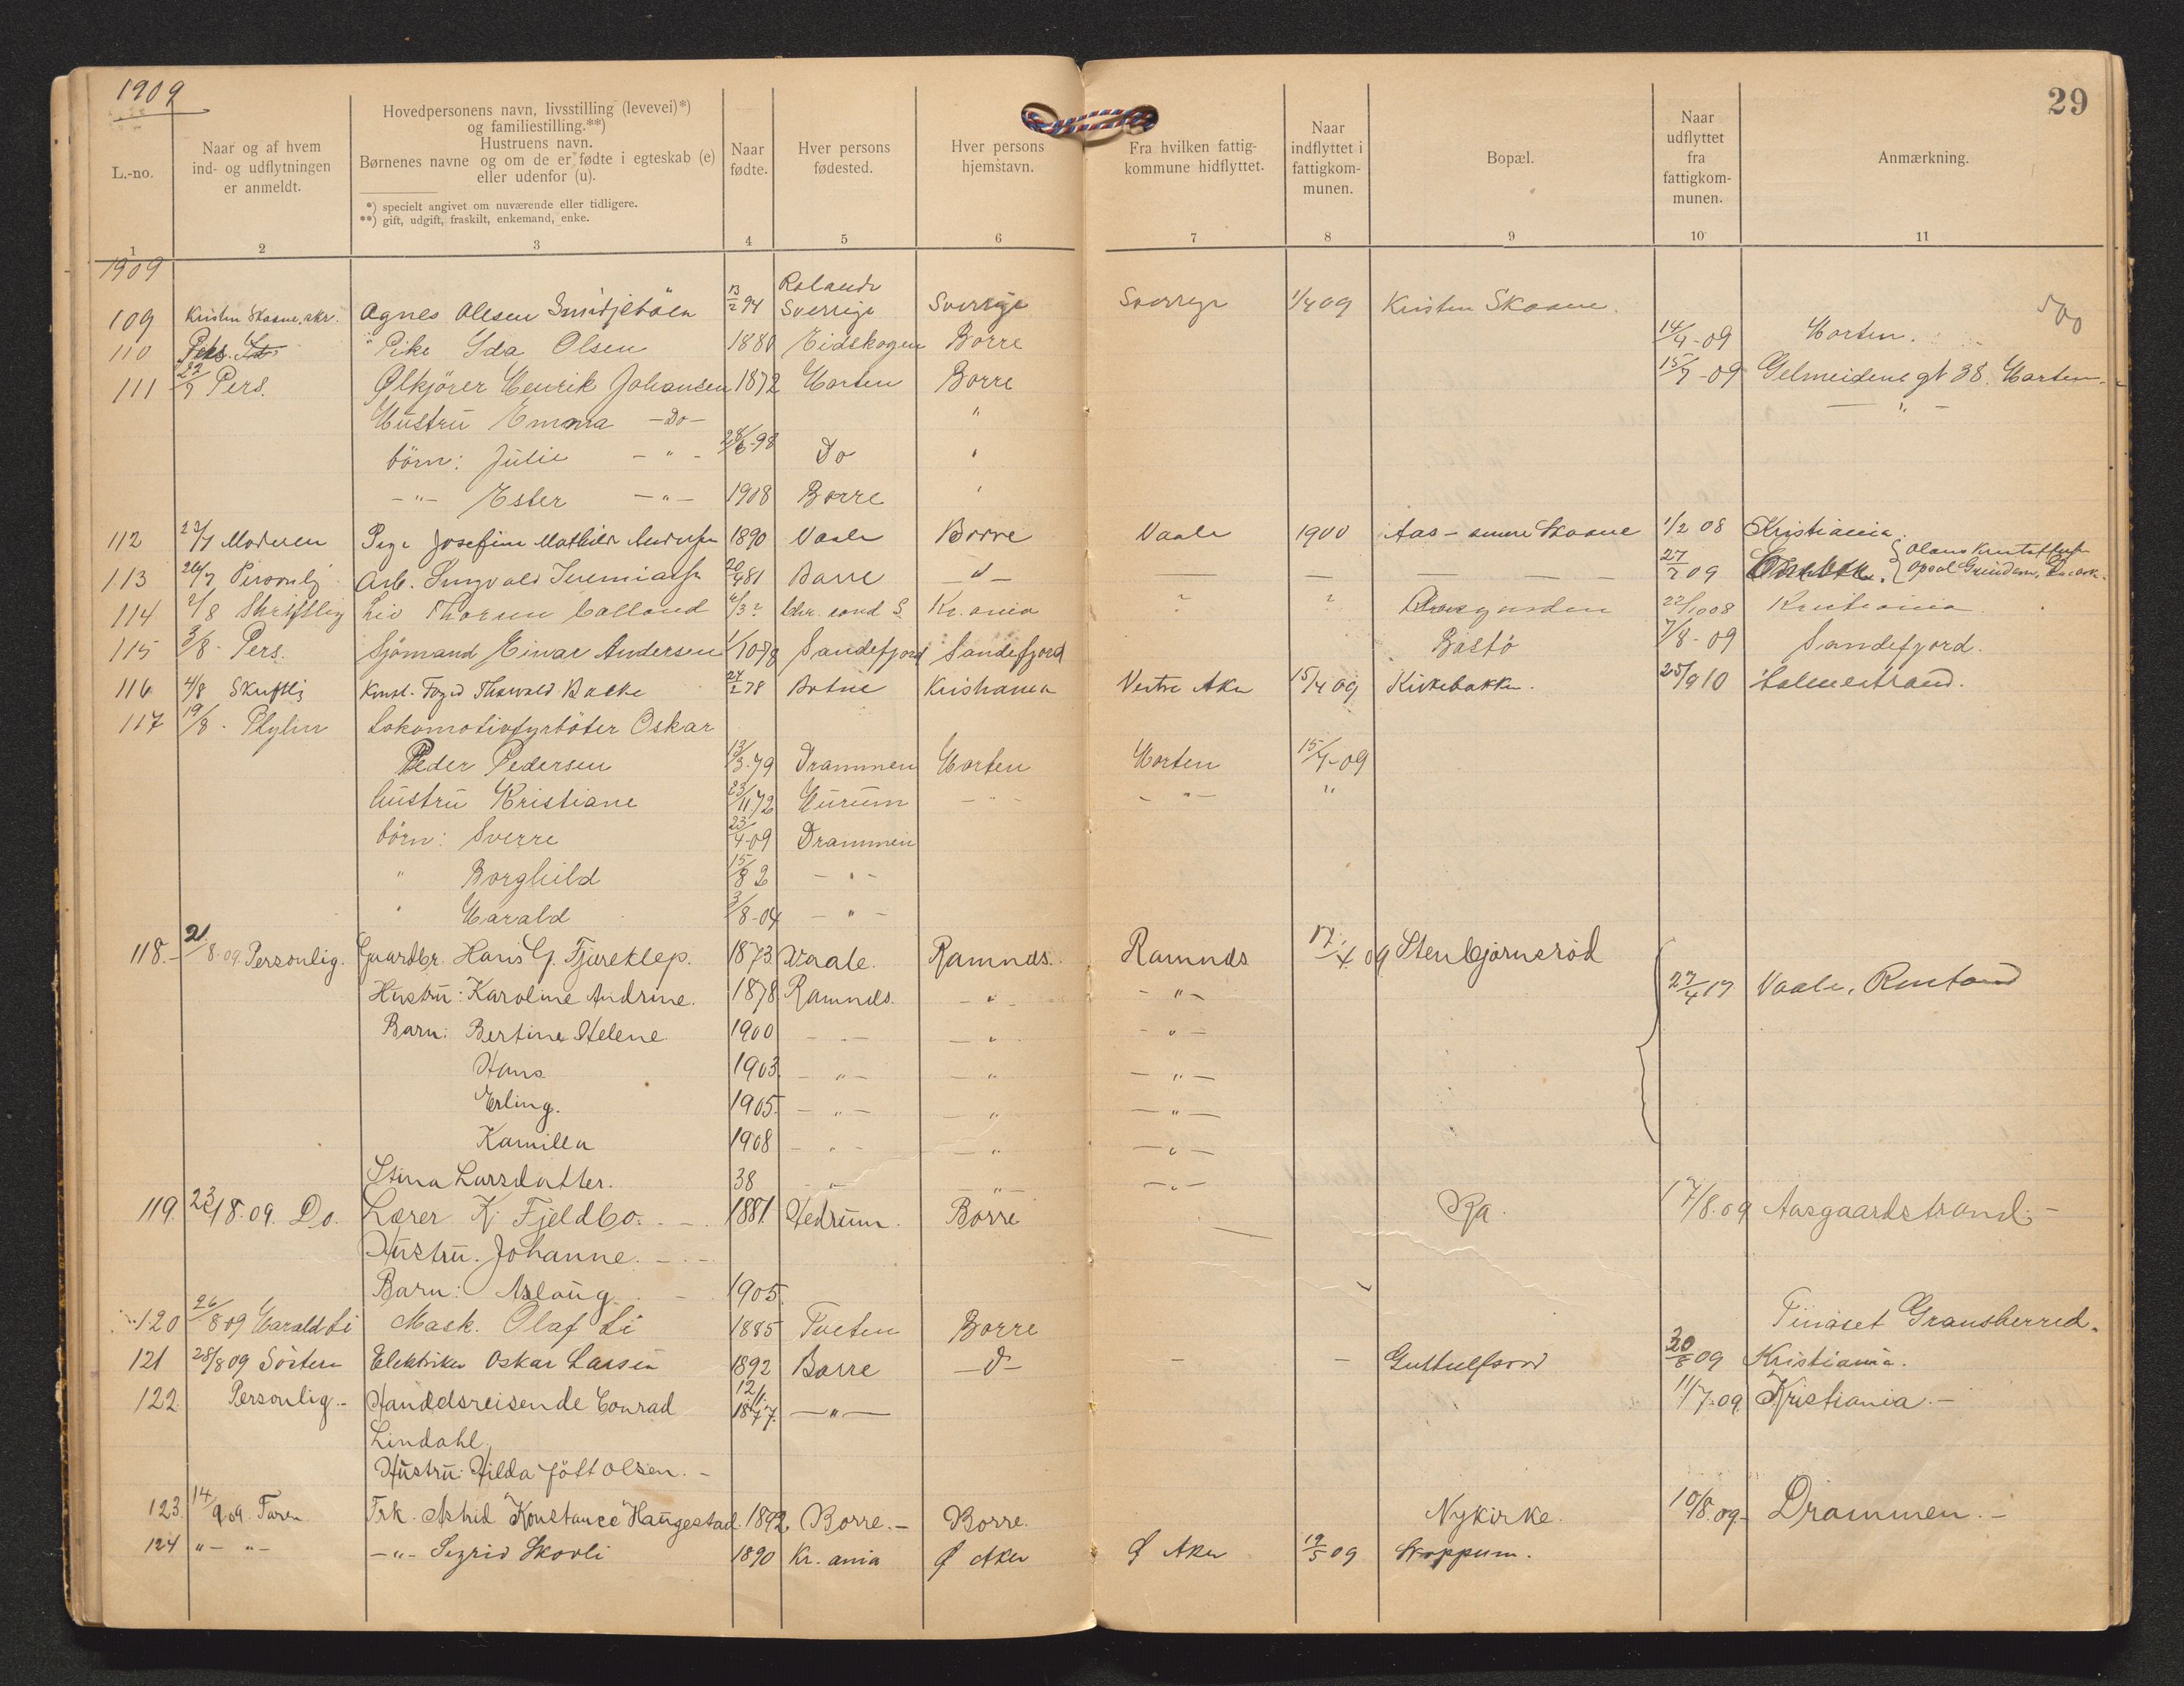 1909
29
L.-no.
Naar og af hvem ind- og udflytningen er anmeldt.
Hovedpersonens navn, livsstilling (levevei)*) og familiestilling.**)
Hustruens navn.
Børnenes navne og om de er fødte i egteskab (e) eller udenfor (u).
*) specielt angivet om nuværende eller tidligere.
**) gift, udgift, fraskilt, enkemand, enke.
Naar fødte.
Hver persons fødested.
Hver persons hjemstavn.
Fra hvilken fattigkommune hidflyttet.
Naar indflyttet i fattigkommunen.
Bopæl.
Naar udflyttet fra fattigkommunen.
Anmærkning.
1 2 3 4 5 6 7 8 9 10 11
1909
109 Kristen Skaane, skr. Agnes Olesen 13/2 94 Sverrige Sverrige Sverrige 1/4 09 Kristen Skaane.
110 Pers. Pike Ida Olsen 1880 Eidskogen Borre 14/4-09 Horten.
111 22/7 Pers. Ølkjører Henrik Johansen 1872 Horten Borre 15/7-09 gt 38. Horten
Hustru Emma -Do- " - " -
börn: Julie - " - 28/6-98 Do "
- " - Ester - " - 1908 Borre "
112 23/7 Moderen Pige Josefine Mathilde 1890 Vaale Borre Vaale 1900 Aas - Skaane 1/2 08 Kristiania
113 26/7 Personlig Arb. 20/4 81 Borre 27/7 09
114 2/8 Skriftlig Kr.ania ? ? 22/10 08 Kristiania
115 3/8 - Pers. Sjömand Einar Andersen 1/10-78 Sandefjord Sandefjord Bastö 7/8-09 Sandefjord.
116 4/8 Skriftlig Thorvald Bakke 24/2 78 Kristiania Vestre Aker 15/4 09 Kirkebakken. 25/9 10 Holmestrand.
117 19/8 - Lokomotivfyrböter Oskar
Peder Pedersen 13/3-79 Drammen Horten Horten 15/7-09
Hustru Kristiane 23/11-72 Hurum - " - - " - "
börn: Sverre 23/4-09 Drammen
" Borghild 15/8 2 - " -
" Harald 3/8-04 - " -
118.- 21/8.09. Personlig. Gaardbr. Hans G. Fjæreklep. 1873 Vaale. Ramnæs. Ramnæs 17/4 09 Stenbjörnsröd
Hustru: Karoline Andrine. 1878 Ramnæs. - " - - " - 27/4 17 Vaale,
Barn: Bertine Helene. 1900 - " - - " - - " -
Hans 1903. - " - - " - - " -
Erling. 1905. - " - - " - - " -
Kamilla 1908 - " - - " - - " -
Stina Larsdatter. 38 - " - - " - - " -
119. 23/8.09. Do. Lærer K. Fjeldbo. 1881 Hedrum. Borre 17/8.09 Aasgaardstrand.-
Hustru. Johanne.
Barn: Aslaug. 1905.
120 26/8 09 Harald Li Mask. Olaf Li 1885 Tveten Borre Tinoset Gransherred.
121 28/8 09 Söster Elektriker Oskar Larsen 1892 Borre 30/8 09 Kristiania.
122. Personlig.- Handelsreisende Conrad 12/1 1877. - " - 11/7-09. Kristiania.-
Lindahl.
Hustru: Hilda fött Olsen.-
123. 14/9 09. Faren Frk. Astrid Konstance Haugestad. 1892 Borre.- Borre. Nykirke. 10/8.09.- Drammen.-
124 " - " - - " - Sigrid Skovli 1890 Kr. ania Ø Aker Ø Aker 19/5 09 Skoppum.